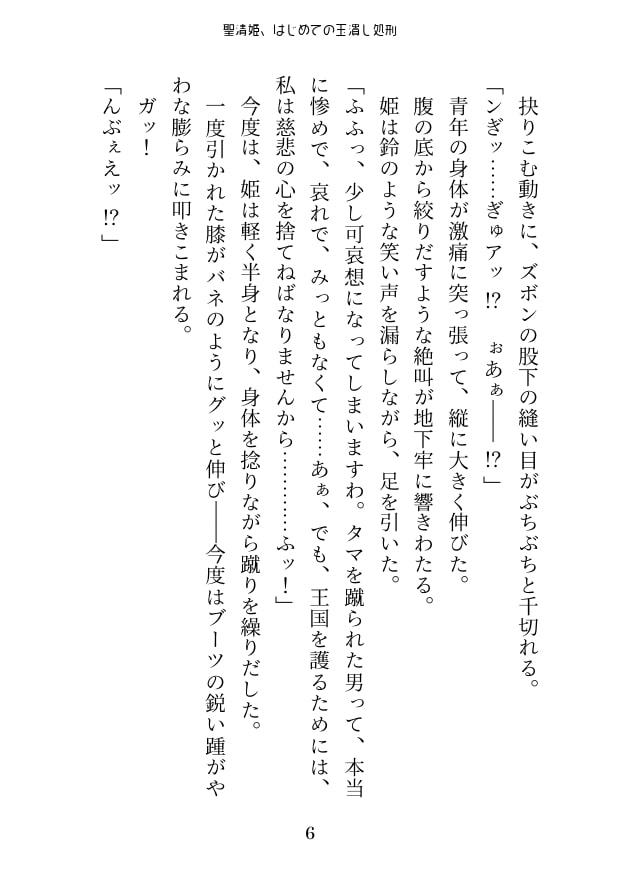 聖清姫、はじめての玉潰し処刑
抉りこむ動きに、ズボンの股下の縫い目がぶちぶちと千切れる。
「ンぎッ……ぎゅアッ!?　ぉあぁ――!?」
青年の身体が激痛に突っ張って、縦に大きく伸びた。
腹の底から絞りだすような絶叫が地下牢に響きわたる。
姫は鈴のような笑い声を漏らしながら、足を引いた。
「ふふっ、少し可哀想になってしまいますわ。タマを蹴られた男って、本当
に惨めで、哀れで、みっともなくて……あぁ、でも、王国を護るためには、
私は慈悲の心を捨てねばなりませんから…………ふッ!」
今度は、姫は軽く半身となり、身体を捻りながら蹴りを繰りだした。
一度引かれた膝がバネのようにグッと伸び――今度はブーツの鋭い踵がや
わな膨らみに叩きこまれる。
ガッ!
「んぶぇえッ!?」
6